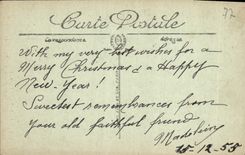 77
Carte Postale
Correspondance Adresse
With my very best wishes for a
Merry Christmas & a Happy
New-Year!
Sweetest remembrances from
your old faithful friend
Madeleine
25-12-55